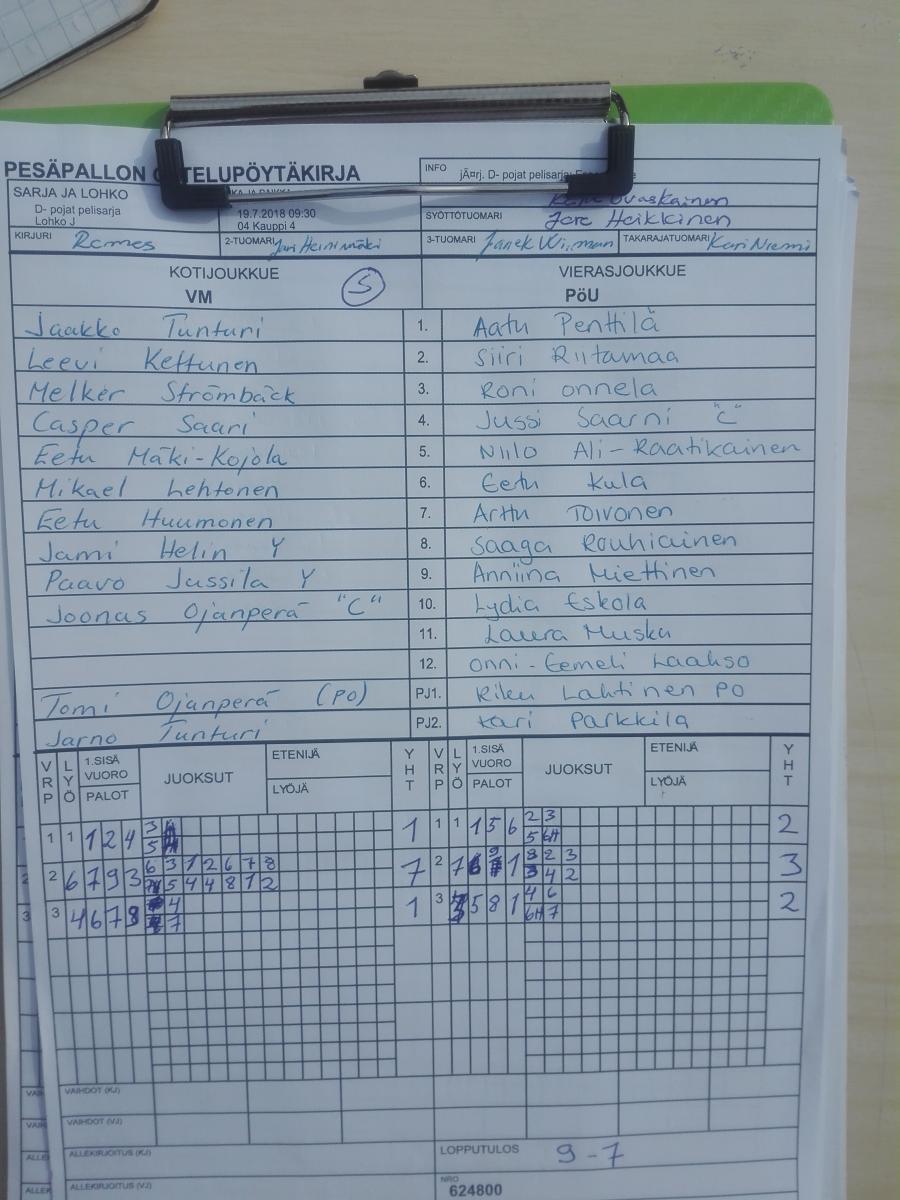 PESÄPALLON OTTELUPÖYTÄKIRJA
INFO
jÃ¤rj. D- pojat pelisarja:
SARJA JA LOHKO
D- pojat pelisarja
Lohko J
19.7.2018 09:30
04 Kauppi 4
SYÖTTÖTUOMARI Jere Heikkinen
KIRJURI Remes
2-TUOMARI Jari Heinimäki
3-TUOMARI Janek
TAKARAJATUOMARI Kari Niemi
KOTIJOUKKUE
VM
S
VIERASJOUKKUE
PöU
Jaakko Tunturi 1. Aatu Penttilä
Leevi Kettunen 2. Siiri Riitamaa
Melker Strömbäck 3. Roni Onnela
Casper Saari 4. Jussi Saarni "C"
Eetu Mäki-Kojola 5. Niilo Ali-Raatikainen
Mikael Lehtonen 6. Eetu Kula
Eetu Huumonen 7. Arttu Toivonen
Jami Helin Y 8. Saaga Rouhiainen
Paavo Jussila Y 9. Anniina Miettinen
Joonas Ojanperä "C" 10. Lydia Eskola
11. Laura Muska
12. Onni-Eemeli Laakso
Tomi Ojanperä (PO) PJ1. Riku Lahtinen PO
Jarno Tunturi PJ2. Kari Parkkila
VRP LYÖ 1.SISÄ VUORO PALOT JUOKSUT ETENIJÄ LYÖJÄ YHT VRP LYÖ 1.SISÄ VUORO PALOT JUOKSUT ETENIJÄ LYÖJÄ YHT
1 1 1 2 4 3 1 1 1 1 5 6 2 3 2
5 5 6H
2 6 7 9 3 6 3 1 2 6 7 8 7 2 7 1 2 3 3
5 4 4 8 1 2 4 2
3 4 6 7 8 4 1 3 5 8 1 4 6 2
7 6H 7
VAIHDOT (KJ)
VAIHDOT (VJ)
ALLEKIRJOITUS (KJ)
LOPPUTULOS 9-7
ALLEKIRJOITUS (VJ)
NRO
624800